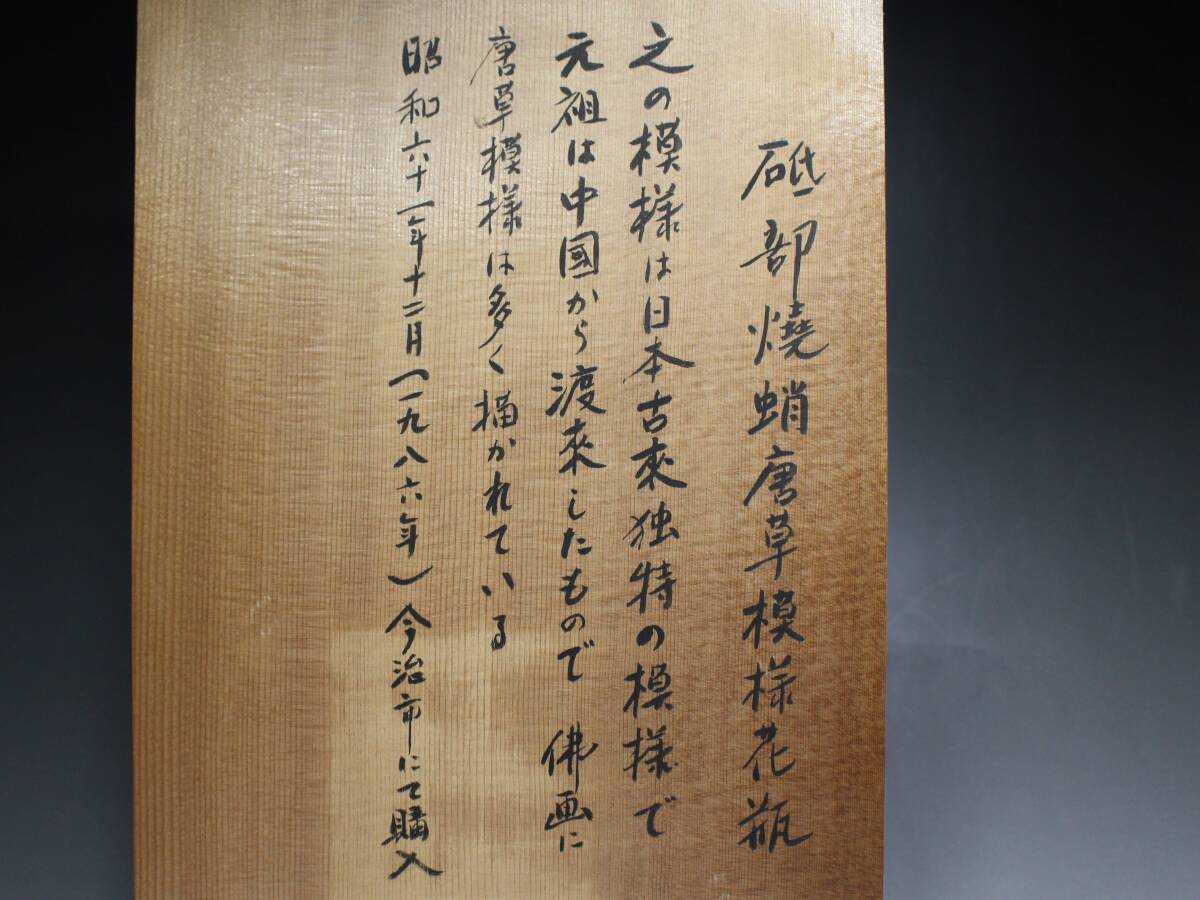 砥部燒蛸唐草模様花瓶
之の模様は日本古來独特の模様で
元祖は中國から渡来したもので 佛画に
唐草模様は多く描かれている
昭和六十一年十二月(一九八六年)今治市にて購入